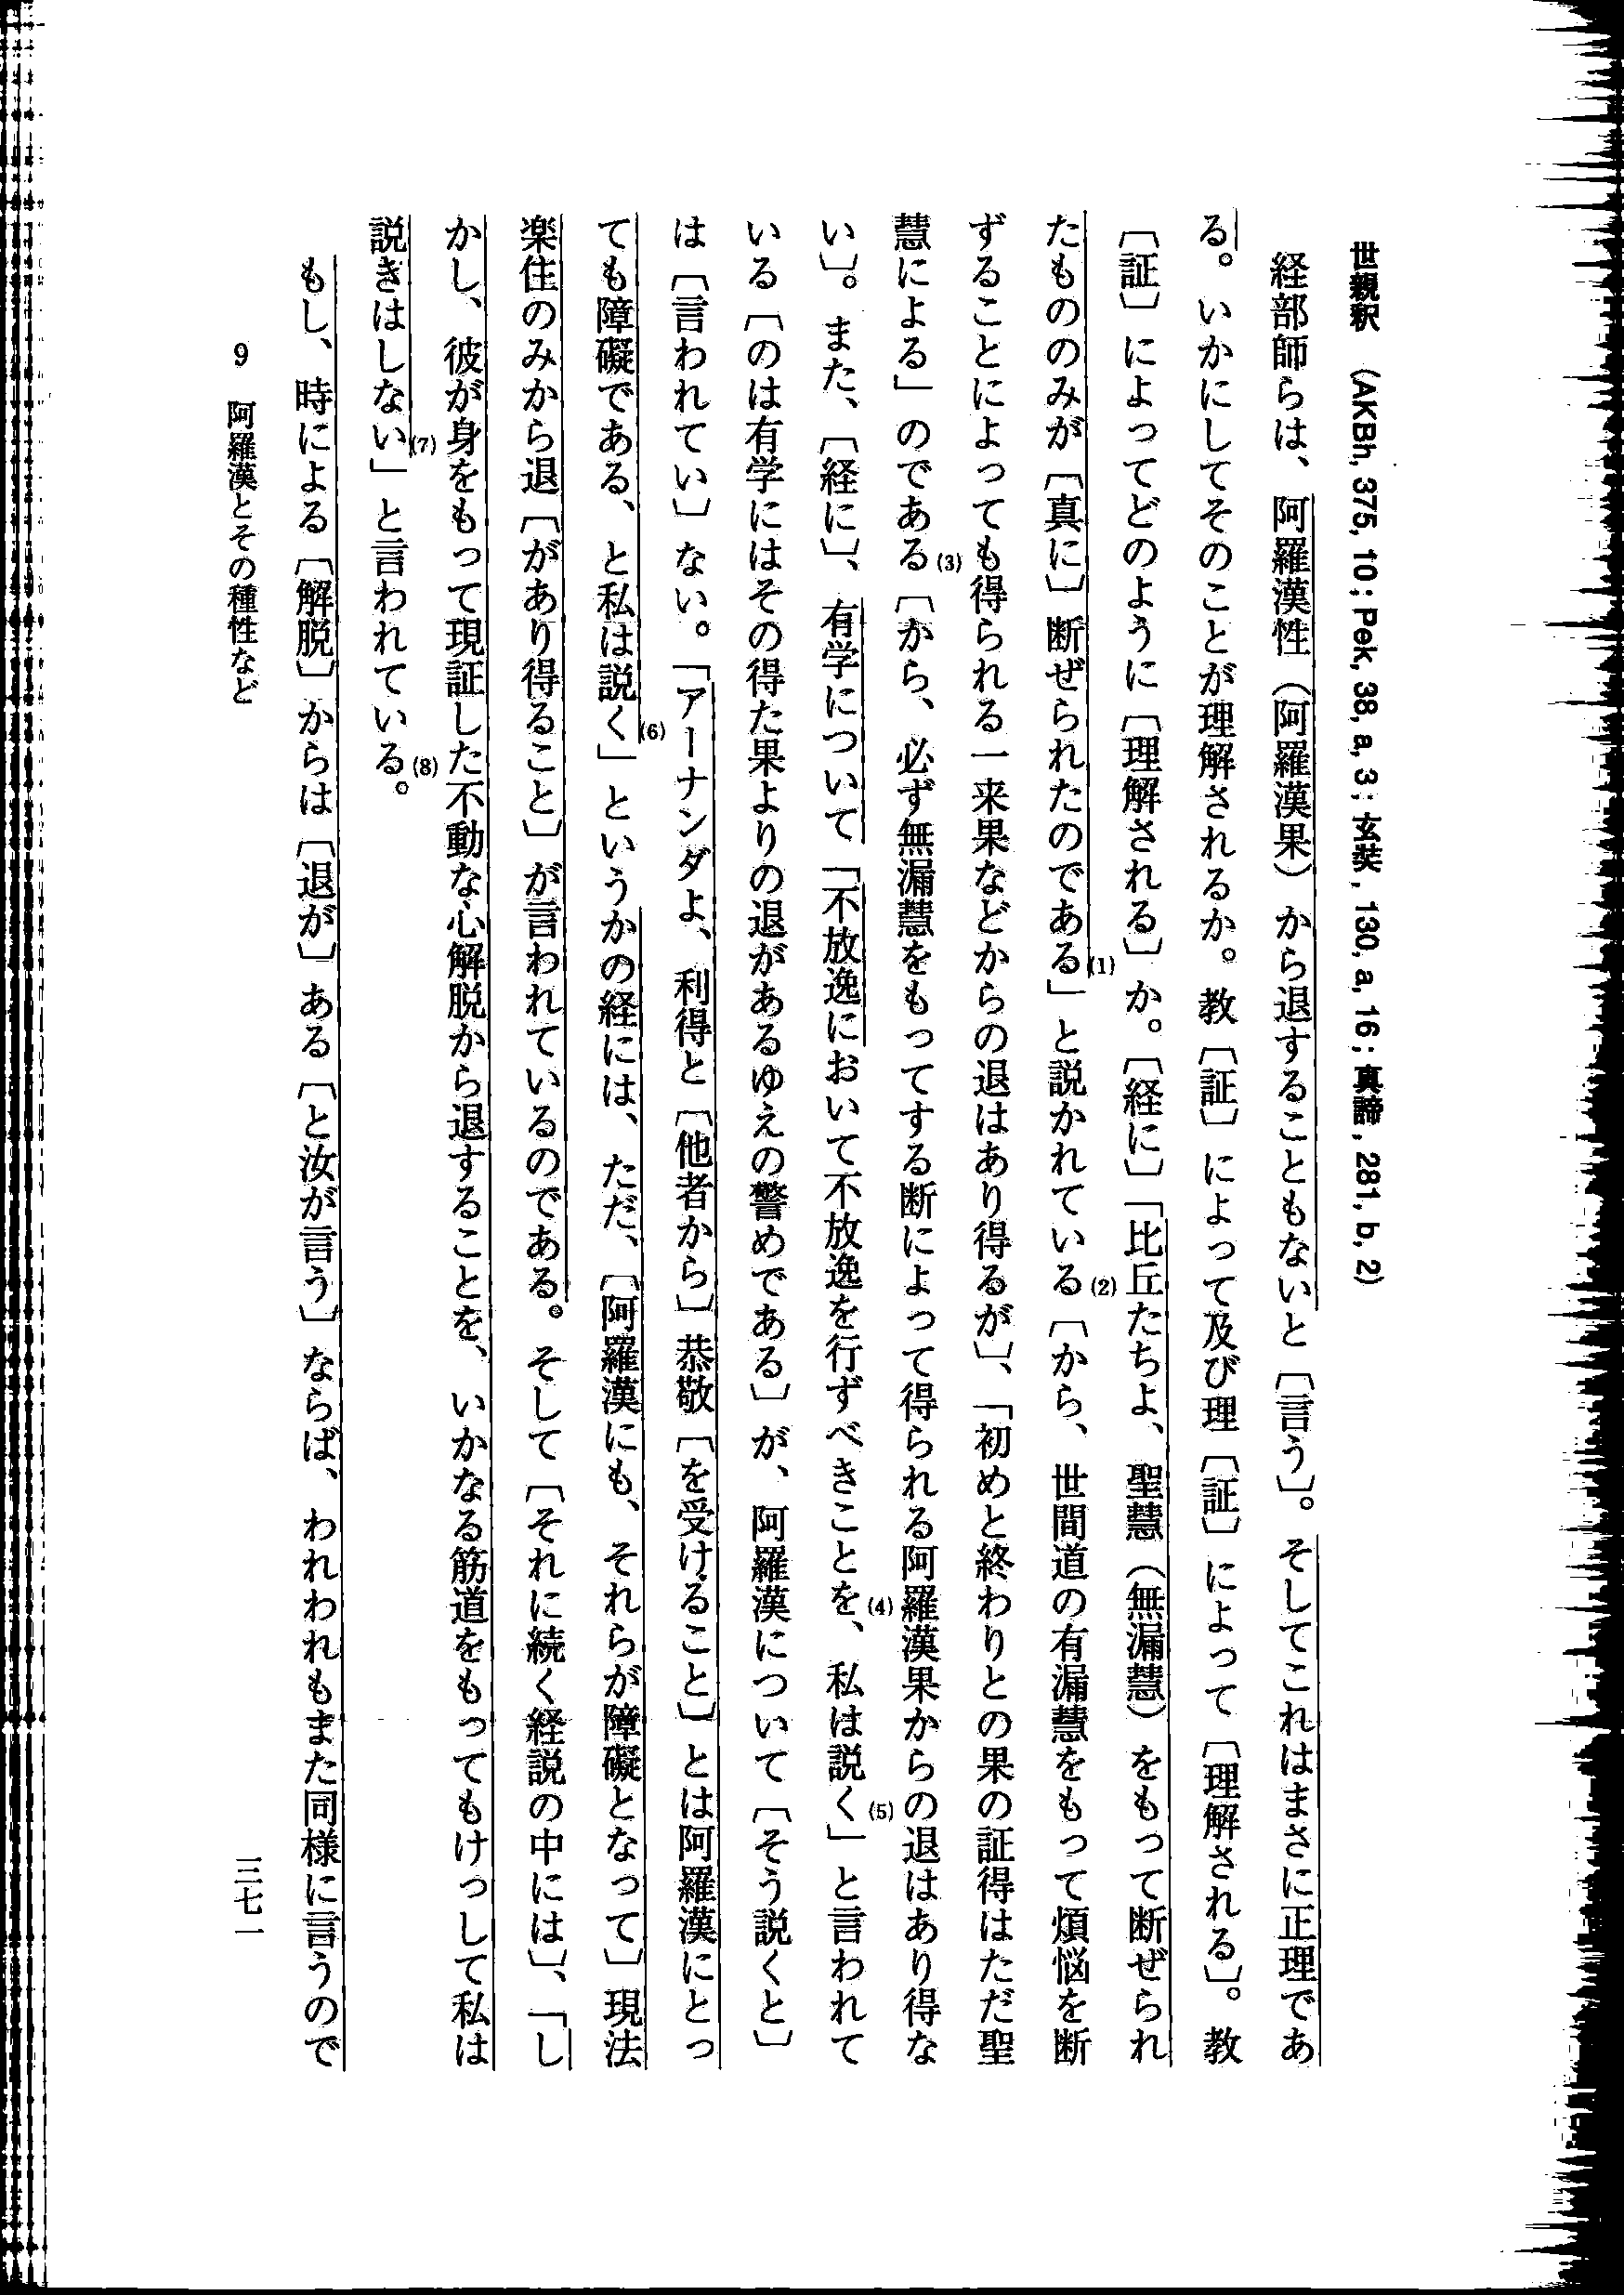 世親釈　(AKBh, 375, 10 ; Pek, 38, a, 3 ; 玄奘, 130, a, 16 ; 真諦, 281, b, 2)
経部師らは、阿羅漢性（阿羅漢果）から退することもないと〔言う〕。そしてこれはまさに正理であ
る。いかにしてそのことが理解されるか。教〔証〕によって及び理〔証〕によって〔理解される〕。教
〔証〕によってどのように〔理解される〕か。〔経に〕「比丘たちよ、聖慧（無漏慧）をもって断ぜられ
たもののみが〔真に〕断ぜられたのである(1)」と説かれている(2)〔から、世間道の有漏慧をもって煩悩を断
ずることによっても得られる一来果などからの退はあり得るが〕、「初めと終わりとの果の証得はただ聖
慧による」のである(3)〔から、必ず無漏慧をもってする断によって得られる阿羅漢果からの退はあり得な
い〕。また、〔経に〕、有学について「不放逸において不放逸を行ずべきことを(4)、私は説く(5)」と言われて
いる〔のは有学にはその得た果よりの退があるゆえの警めである〕が、阿羅漢について〔そう説くと〕
は〔言われてい〕ない。「アーナンダよ、利得と〔他者から〕恭敬〔を受けること〕とは阿羅漢にとっ
ても障礙である、と私は説く(6)」というかの経には、ただ、〔阿羅漢にも、それらが障礙となって〕現法
楽住のみから退〔があり得ること〕が言われているのである。そして〔それに続く経説の中には〕、「し
かし、彼が身をもって現証した不動な心解脱から退することを、いかなる筋道をもってもけっして私は
説きはしない(7)」と言われている(8)。
もし、時による〔解脱〕からは〔退が〕ある〔と汝が言う〕ならば、われわれもまた同様に言うので
9　阿羅漢とその種性など
三七一